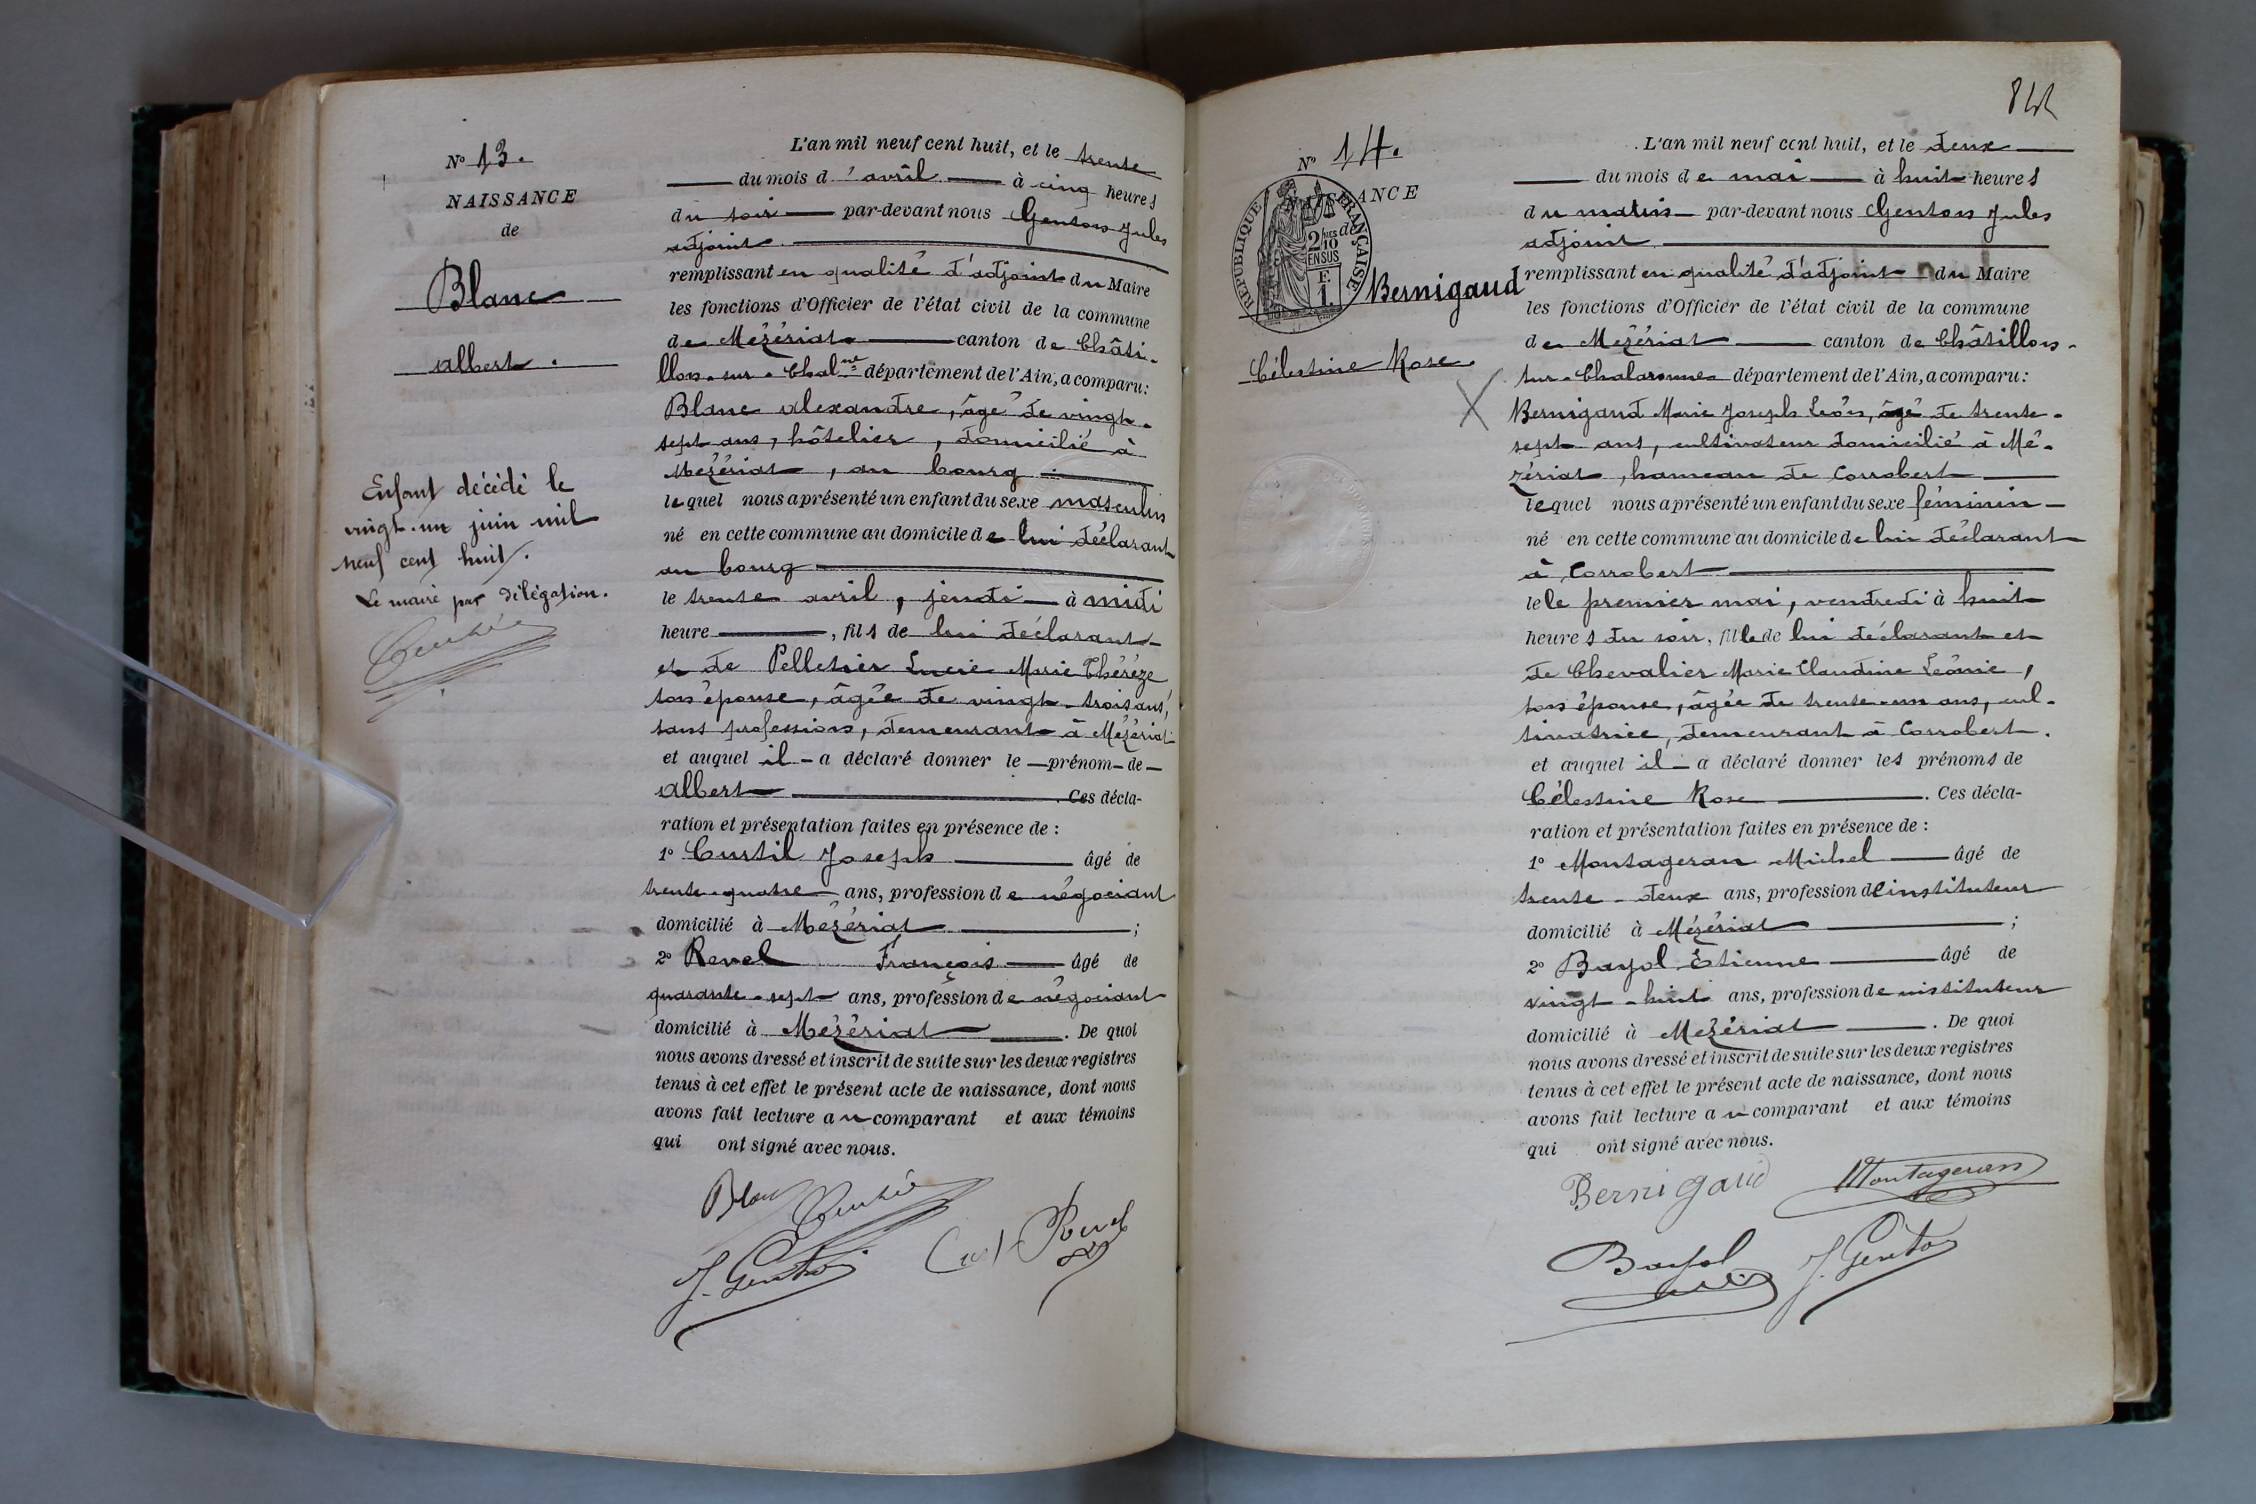 Nº 13.
NAISSANCE
de
Blanc
Albert.
Enfant décédé le
vingt-un juin mil
neuf cent huit.
Le maire par délégation.
L'an mil neuf cent huit, et le trente
du mois d'avril à cinq heures
du soir par-devant nous Genton Jules
adjoint
remplissant en qualité d'adjoint du Maire
les fonctions d'Officier de l'état civil de la commune
de Mézériat canton de Châti-
llon-sur-Chalne département de l'Ain, a comparu:
Blanc Alexandre, âgé de vingt-
sept ans, hôtelier, domicilié à
Mézériat, au bourg
lequel nous a présenté un enfant du sexe masculin
né en cette commune au domicile de lui déclarant
au bourg
le trente avril, jeudi à midi
heure, fils de lui déclarant
et de Pelletier Lucie Marie Théréze
son épouse, âgée de vingt-trois ans,
sans profession, demeurant à Mézériat
et auquel il a déclaré donner le prénom de
Albert. Ces décla-
ration et présentation faites en présence de :
1º Curtil Joseph âgé de
trente-quatre ans, profession de négociant
domicilié à Mézériat ;
2º Revel François âgé de
quarante-sept ans, profession de négociant
domicilié à Mézériat. De quoi
nous avons dressé et inscrit de suite sur les deux registres
tenus à cet effet le présent acte de naissance, dont nous
avons fait lecture au comparant et aux témoins
qui ont signé avec nous.
Blanc
Revel
J. Genton
Nº 14.
NAISSANCE
RÉPUBLIQUE FRANÇAISE
2/10 EN SUS
F. 1.
Bernigaud
Célestine Rose.
X
L'an mil neuf cent huit, et le deux
du mois de mai à huit heures
du matin par-devant nous Genton Jules
adjoint
remplissant en qualité d'adjoint du Maire
les fonctions d'Officier de l'état civil de la commune
de Mézériat canton de Châtillon-
sur-Chalaronne département de l'Ain, a comparu:
Bernigaud Marie Joseph Léon, âgé de trente-
sept ans, cultivateur domicilié à Mé-
zériat, hameau de Corrobert
lequel nous a présenté un enfant du sexe féminin
né en cette commune au domicile de lui déclarant
à Corrobert
le le premier mai, vendredi à huit
heures du soir, fille de lui déclarant et
de Chevalier Marie Claudine Léonie,
son épouse, âgée de trente-un ans, cul-
tivatrice, demeurant à Corrobert.
et auquel il a déclaré donner les prénoms de
Célestine Rose. Ces décla-
ration et présentation faites en présence de :
1º Montageran Michel âgé de
trente-deux ans, profession de instituteur
domicilié à Mézériat ;
2º Bayol Etienne âgé de
vingt-huit ans, profession de instituteur
domicilié à Mézériat. De quoi
nous avons dressé et inscrit de suite sur les deux registres
tenus à cet effet le présent acte de naissance, dont nous
avons fait lecture au comparant et aux témoins
qui ont signé avec nous.
Bernigaud Montageran
Bayol J. Genton